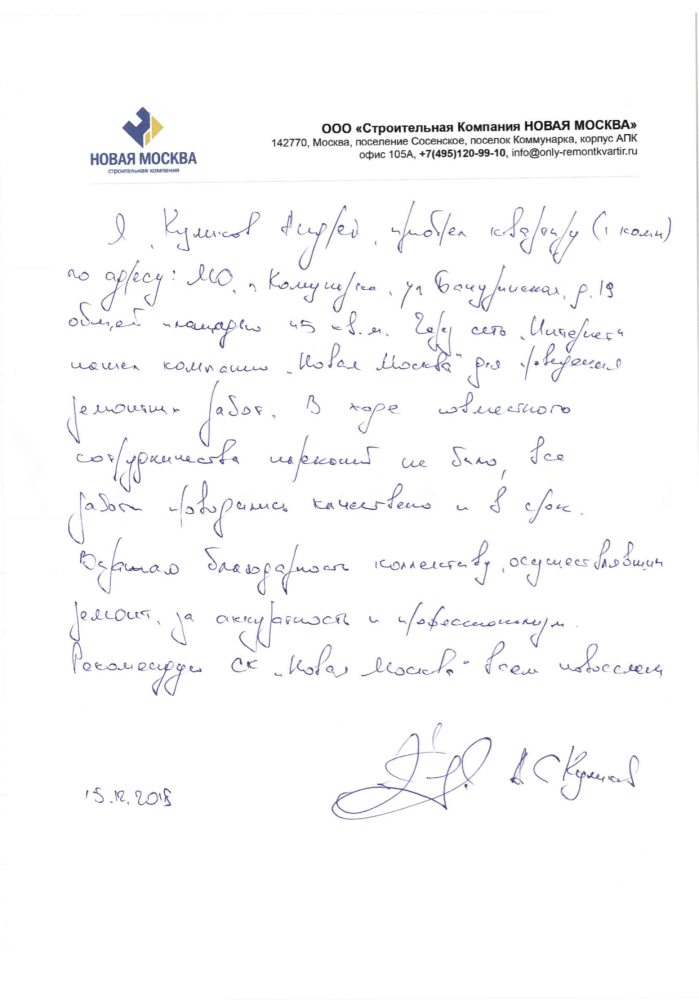 НОВАЯ МОСКВА
строительная компания
ООО «Строительная Компания НОВАЯ МОСКВА»
142770, Москва, поселение Сосенское, поселок Коммунарка, корпус АПК
офис 105А, +7(495)120-99-10, info@only-remontkvartir.ru
Я, Куликов Андрей, приобрел квартиру (1 комн)
по адресу: МО, п Комунарка, ул Бачуринская, д. 19
общей площадью 45 кв.м. Через сеть „Интернет"
нашел компанию „Новая Москва" для проведения
ремонтных работ. В ходе совместного
сотрудничества нареканий не было, все
работы проводились качествено и в срок.
Выражаю благодарность коллективу, осуществлявшим
ремонт, за аккуратность и профессионализм.
Рекомендую СК „Новая Москва" всем новоселам
А С Куликов
15.12.2018